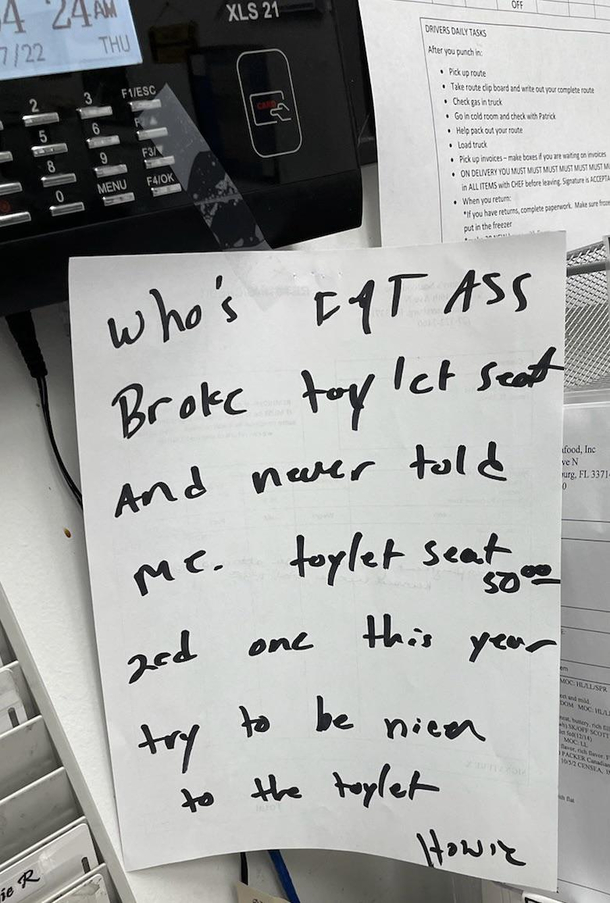 4 24 AM
7/22 THU
XLS 21
2 3 F1/ESC
5 6
8 9 F3/
0 MENU F4/OK
CARD
OFF
DRIVERS DAILY TASKS
After you punch in:
• Pick up route
• Take route clip board and write out your complete route
• Check gas in truck
• Go in cold room and check with Patrick
• Help pack out your route
• Load truck
• Pick up invoices – make boxes if you are waiting on invoices
• ON DELIVERY YOU MUST MUST MUST MUST MUST MUST M
in ALL ITEMS with CHEF before leaving. Signature is ACCEPTA
• When you return:
*If you have returns, complete paperwork. Make sure froze
put in the freezer
who's FAT ASS
Broke toylet seat
And never told
me. toylet seat
50.00
2ed one this year
try to be nicer
to the toylet
Howie
afood, Inc
ve N
urg, FL 3371
0
MOC: HL/LL/SPR
MOC: LL
PACKER Canadian
ie R